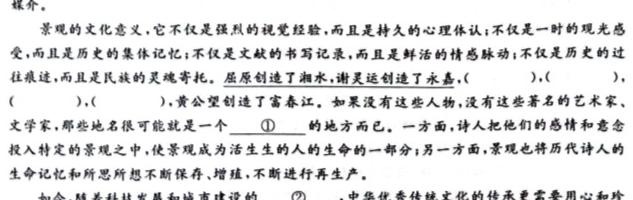 媒介。
景观的文化意义,它不仅是强烈的视觉经验,而且是持久的心理体认;不仅是一时的观光感
受,而且是历史的集体记忆;不仅是文献的书写记录,而且是鲜活的情感脉动;不仅是历史的过
往痕迹,而且是民族的灵魂寄托。屈原创造了湘水,谢灵运创造了永嘉,(  ),(  ),
(  ),(  ),黄公望创造了富春江。如果没有这些人物,没有这些著名的艺术家、
文学家,那些地名很可能就是一个 ① 的地方而已。一方面,诗人把他们的感情和意念
投入特定的景观之中,使景观成为活生生的人的生命的一部分;另一方面,景观也将历代诗人的
生命记忆和所思所想不断保存、增殖,不断进行再生产。
如今,随着科技发展和城市建设的 ② ,中华优秀传统文化的传承更需要用心和珍